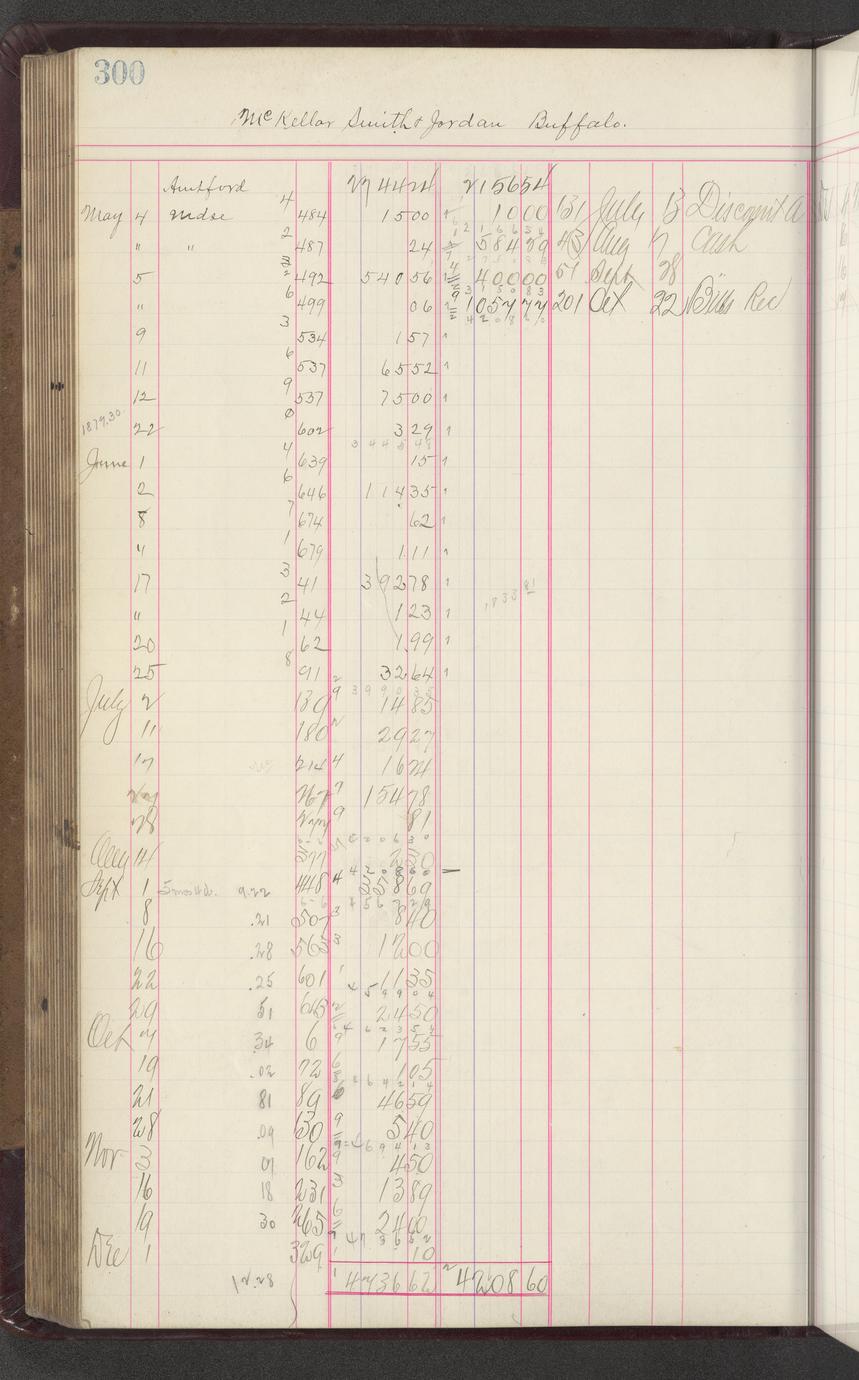 300
McKellar Smith & Jordan Buffalo.
Amtford 274424 215654
May 4 Mdse 4 484 1500 1000 131 July 13 Discount
" " 2 487 24 58429 43 Aug 7 Cash
5 492 54056 40000 51 Sept 28 "
" 6 499 06 105777 201 Oct 22 Bills Rec
9 3 534 157
11 6 537 6552
12 9 537 7500
1879.30
22 0 602 329
344548
June 1 4 639 15
2 6 646 11435
8 7 674 62
" 1 679 111
17 3 41 39278
" 2 44 123
1833 81
20 1 62 199
25 8 91 3264
399035
July 2 139 9 1485
11 180 2927
17 214 4 1624
267 7 15478
28 9 81
420630
Aug 14 377 230
420860
Sept 1 5 mos 4 ds. 9.22 448 4 25869
8 .21 507 3 840
16 .28 565 3 1200
22 .25 601 1 1135
29 51 645 2450
Oct 7 34 6 9 1755
19 .02 72 6 105
21 81 89 6 4659
28 .09 130 9 540
469413
Nov 3 07 162 9 450
16 18 231 3 1389
19 30 265 6 2400
473652
Dec 1 329 1 10
12.28 473662 420860